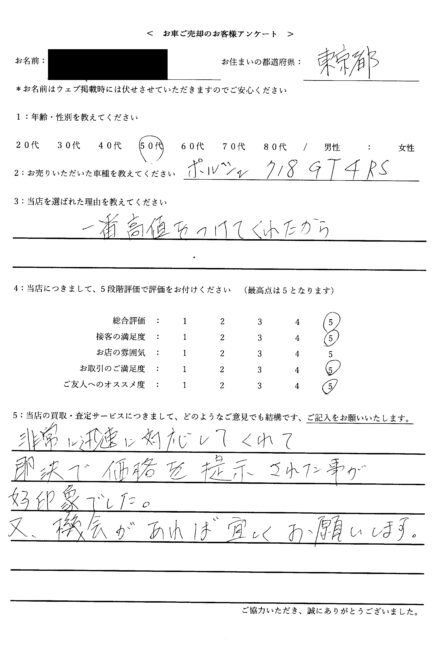 < お車ご売却のお客様アンケート >
お名前： お住まいの都道府県： 東京都
＊お名前はウェブ掲載時には伏せさせていただきますのでご安心ください
1：年齢・性別を教えてください
20代 30代 40代 50代 60代 70代 80代 / 男性 ： 女性
2：お売りいただいた車種を教えてください ポルシェ 718 GT4RS
3：当店を選ばれた理由を教えてください
一番高値をつけてくれたから
4：当店につきまして、5段階評価で評価をお付けください （最高点は5となります）
総合評価 ： 1 2 3 4 5
接客の満足度 ： 1 2 3 4 5
お店の雰囲気 ： 1 2 3 4 5
お取引のご満足度 ： 1 2 3 4 5
ご友人へのオススメ度 ： 1 2 3 4 5
5：当店の買取・査定サービスにつきまして、どのようなご意見でも結構です、ご記入をお願いいたします。
非常に迅速に対応してくれて
即決で価格を提示された事が
好印象でした。
又、機会があれば宜しくお願いします。
ご協力いただき、誠にありがとうございました。